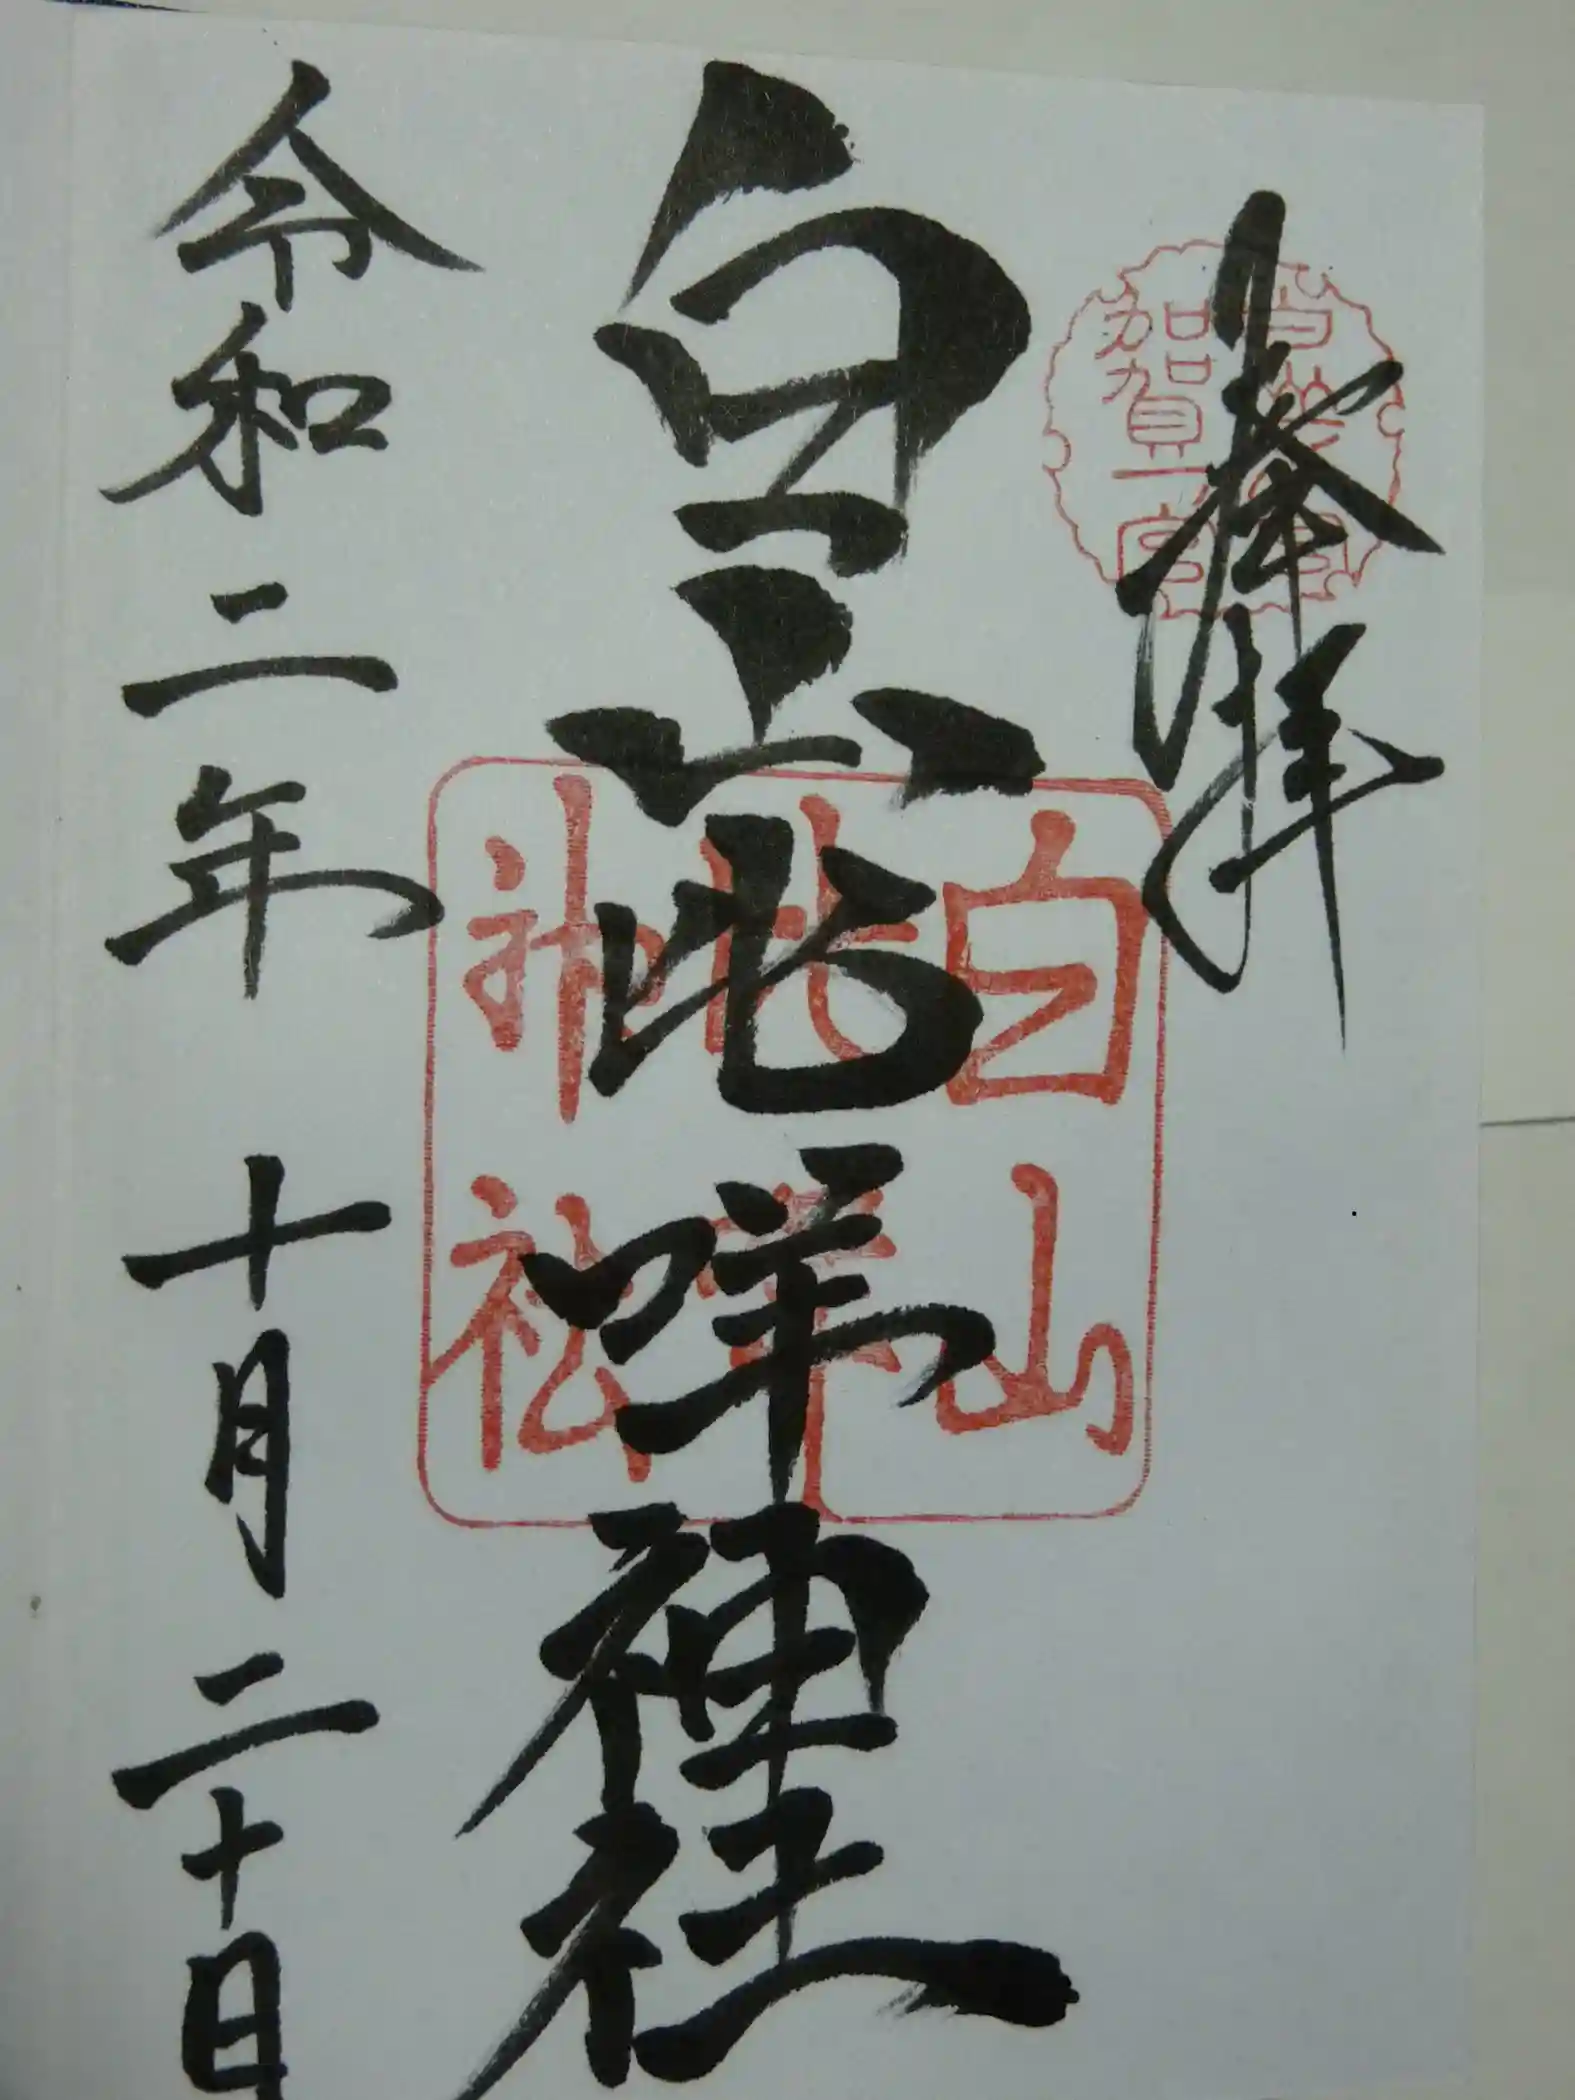 奉拝
加賀一宮
白山比咩神社
白山
比咩
神社
令和二年 十月二十日